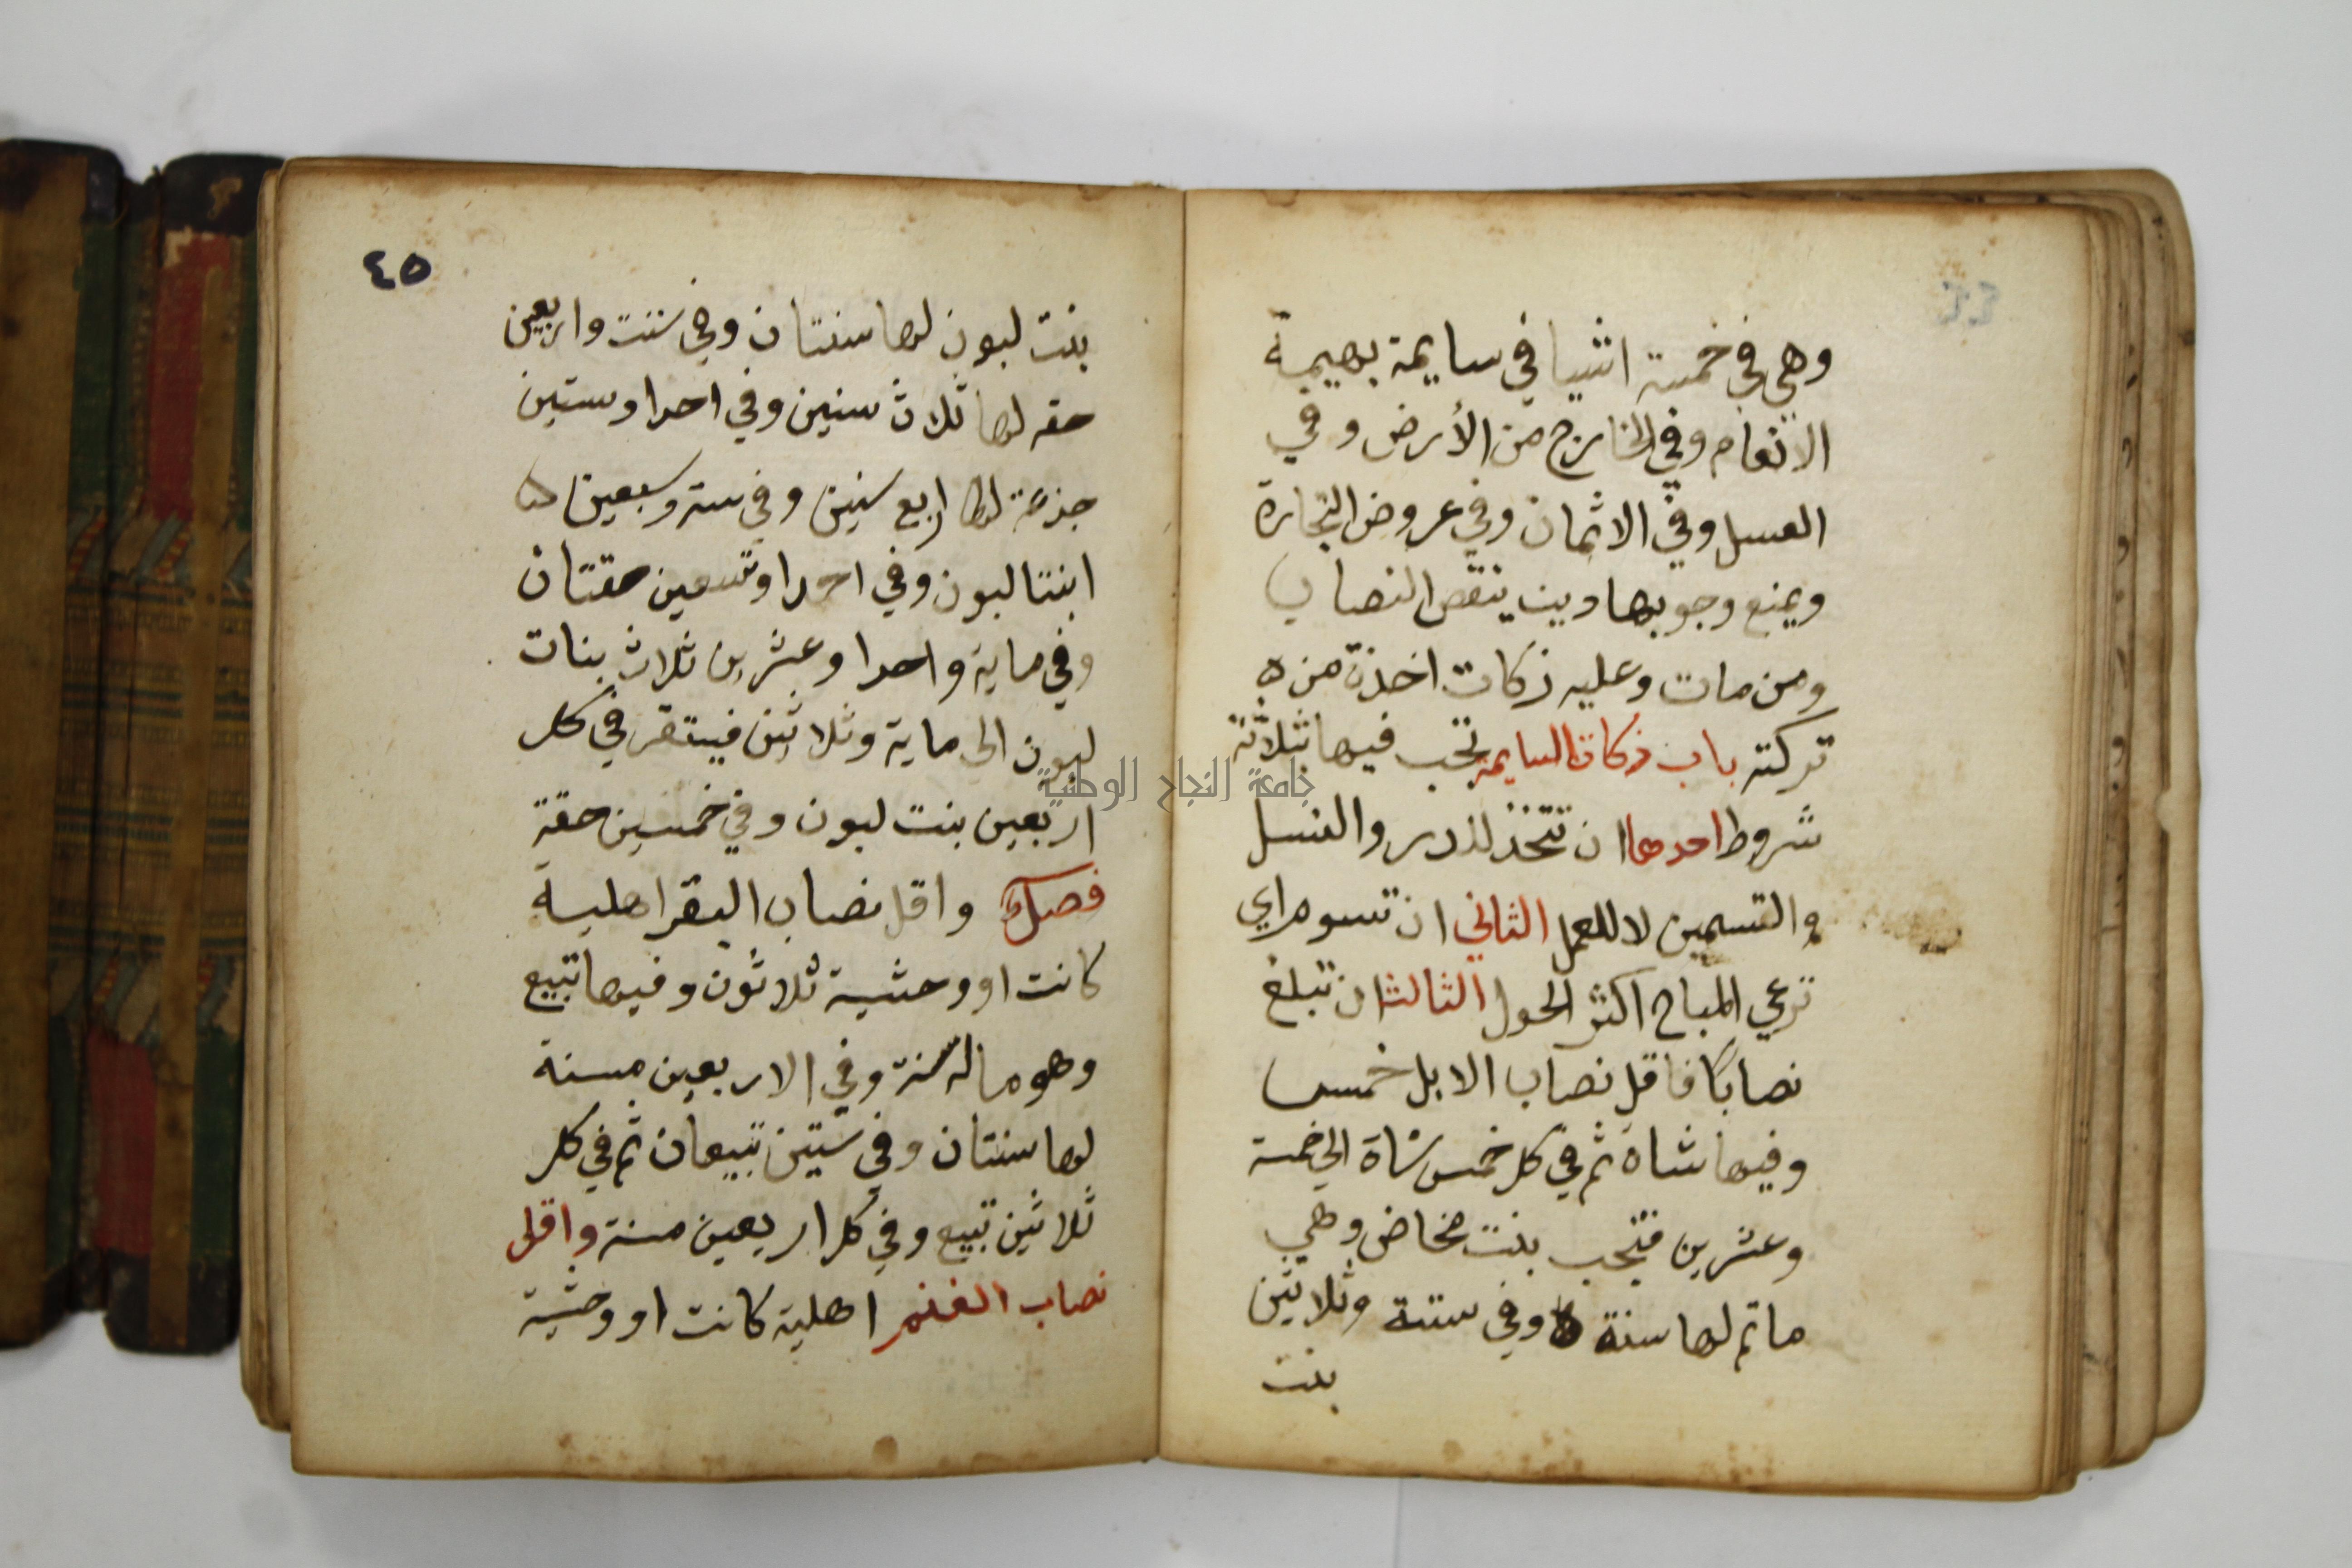 وهي في خمسة اشيا في سايمة بهيمة
الانعام وفي الخارج من الأرض وفي
العسل وفي الاثمان وفي عروض التجارة
ويمنع وجوبها دين ينقص النصاب
ومن مات وعليه زكات اخذة من
تركته باب زكاة السايمة تجب فيها بثلاثة
شروط احدها ان تتخذ للدر والنسل
والتسمين لا للعمل الثاني ان تسوم اي
ترعي المباح اكثر الحول الثالث ان تبلغ
نصابًا فاقل نصاب الابل خمس
وفيها شاة ثم في كل خمس شاة الي خمسة
وعشرين فتجب بنت مخاض وهي
ماتم لها سنة وفي ستة وثلاثين
بنت
٤٥
بنت لبون لها سنتان وفي ست واربعين
حقه لها ثلاث سنين وفي احدا وستين
جذعة لها اربع سنين وفي ستة وسبعين
ابنتا لبون وفي احدا وتسعين حقتان
وفي ماية واحدا وعشرين ثلاث بنات
لبون الى ماية وثلاثين فيستقر في كل
اربعين بنت لبون وفي خمسين حقة
فصل واقل نصاب البقر اهلية
كانت او وحشية ثلاثون وفيها تبيع
وهو ماله سنة وفي الاربعين مسنة
لها سنتان وفي ستين تبيعان ثم في كل
ثلاثين تبيع وفي كل اربعين مسنة واقل
نصاب الغنم اهلية كانت او وحشية
جامعة النجاح الوطنية